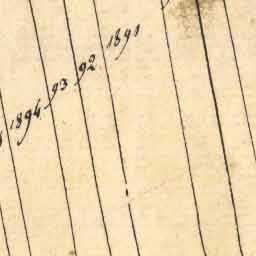 1894 93 92 1891